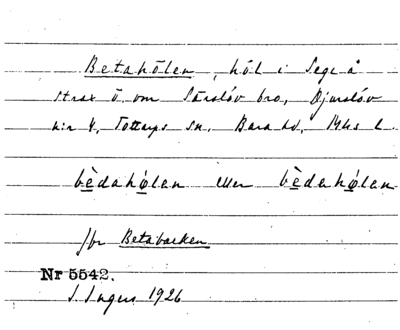 Betahölen, höl i Sege å
strax ö. om Särslöv bro, Djurslöv
n:r 4, Tottarps sn, Bara hd, Mlhs l.
bèdahø̀len eller bèdahø̀len
Jfr Betabacken
Nr 5542.
S. Ingers 1926